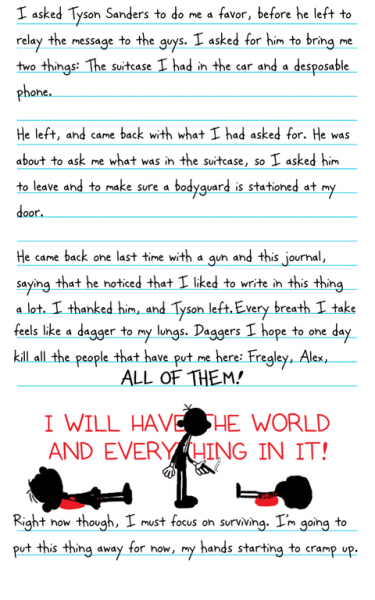 I asked Tyson Sanders to do me a favor, before he left to
relay the message to the guys. I asked for him to bring me
two things: The suitcase I had in the car and a desposable
phone.
He left, and came back with what I had asked for. He was
about to ask me what was in the suitcase, so I asked him
to leave and to make sure a bodyguard is stationed at my
door.
He came back one last time with a gun and this journal,
saying that he noticed that I liked to write in this thing
a lot. I thanked him, and Tyson left.Every breath I take
feels like a dagger to my lungs. Daggers I hope to one day
kill all the people that have put me here: Fregley, Alex,
ALL OF THEM!
I WILL HAVE THE WORLD
AND EVERYTHING IN IT!
Right now though, I must focus on surviving. I'm going to
put this thing away for now, my hands starting to cramp up.